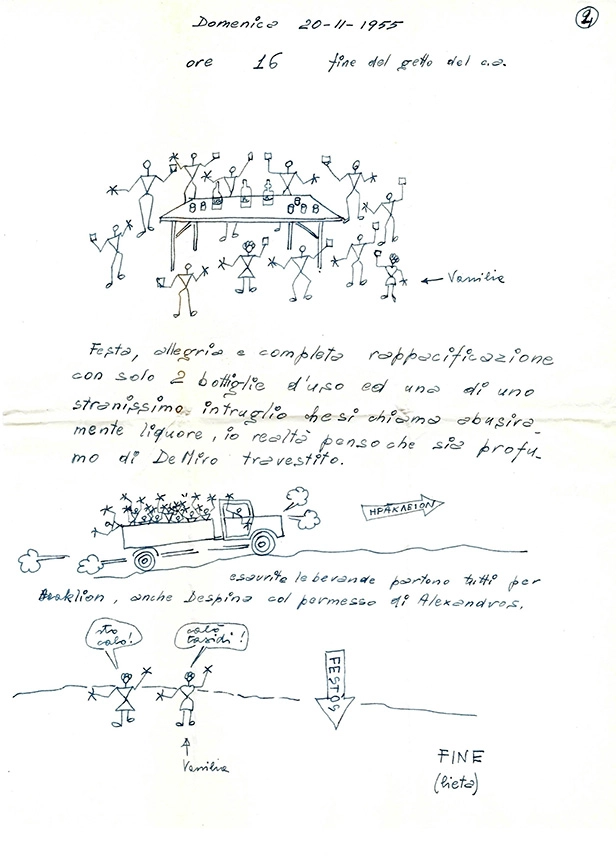 2
Domenica 20-11-1955
ore 16 fine del getto del c.a.
← Vassilia
Festa, allegria e completa rappacificazione
con solo 2 bottiglie d'uso ed una di uno
stranissimo intruglio che si chiama abusiva-
mente liquore, io realtà penso che sia profu-
mo di De Miro travestito.
ΗΡΑΚΛΕΙΟΝ
esaurite le bevande partono tutti per
Iraklion, anche Despina col permesso di Alexandros.
sto
calò!
calò
tasidi!
FESTÒS
Vassilia
FINE
(lieta)